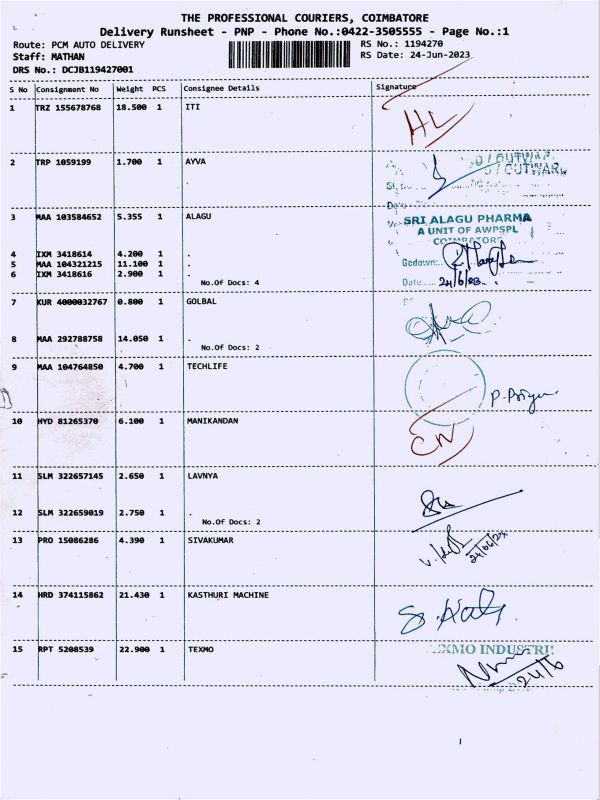 THE PROFESSIONAL COURIERS, COIMBATORE
Delivery Runsheet - PNP - Phone No.:0422-3505555 - Page No.:1
Route: PCM AUTO DELIVERY RS No.: 1194270
Staff: MATHAN RS Date: 24-Jun-2023
DRS No.: DCJB119427001
S No Consignment No Weight PCS Consignee Details Signature
1 TRZ 155678768 18.500 1 ITI
HL
2 TRP 1059199 1.700 1 AYVA
D / OUTWAR
/ OUTWARD
3 MAA 103584652 5.355 1 ALAGU
SRI ALAGU PHARMA
A UNIT OF AWPSPL
COIMBATORE
4 IXM 3418614 4.200 1 .
5 MAA 104321215 11.100 1 .
Godown:
6 IXM 3418616 2.900 1 .
No.Of Docs: 4
Date: 24/6/23
7 KUR 4000032767 0.800 1 GOLBAL
8 MAA 292788758 14.050 1 .
No.Of Docs: 2
9 MAA 104764850 4.700 1 TECHLIFE
P. Priya
10 HYD 81265370 6.100 1 MANIKANDAN
CN
11 SLM 322657145 2.650 1 LAVNYA
12 SLM 322659019 2.750 1 .
No.Of Docs: 2
13 PRO 15086286 4.390 1 SIVAKUMAR
14 HRD 374115862 21.430 1 KASTHURI MACHINE
15 RPT 5208539 22.900 1 TEXMO
EXMO INDUSTRI
24/6